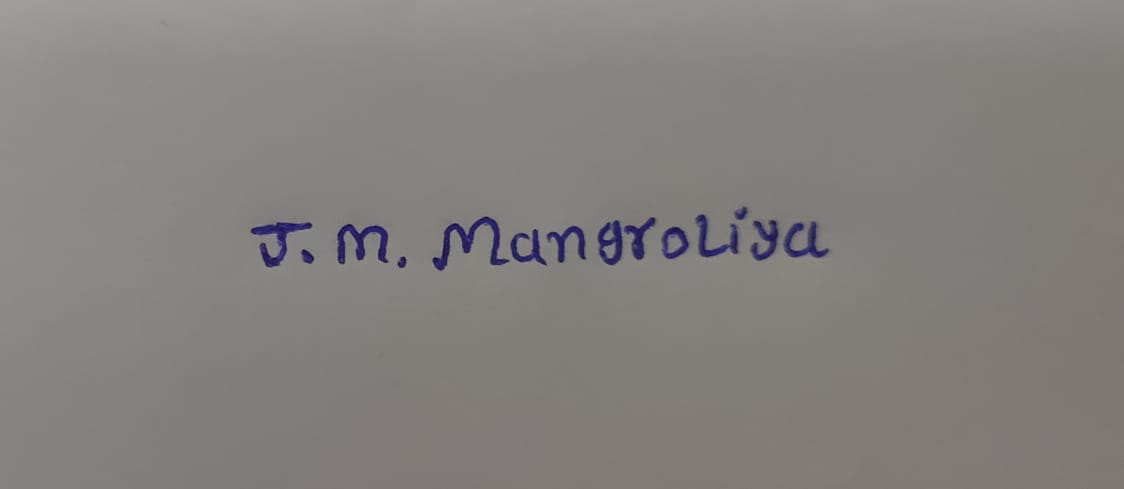 J. M. Mangroliya